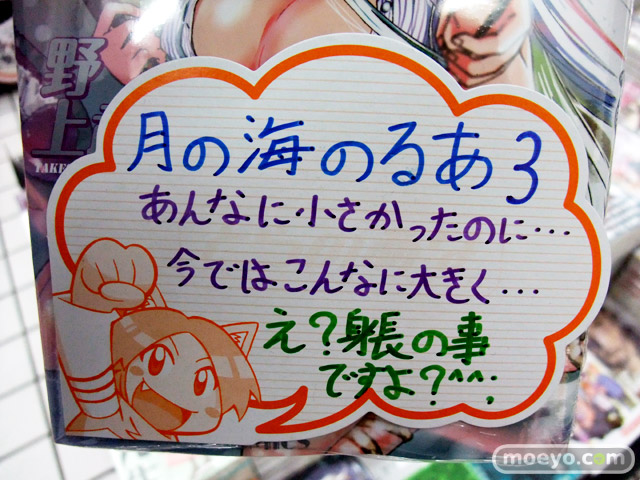 野上
TAKE
月の海のるあ3
あんなに小さかったのに…
今ではこんなに大きく…
え?身長の事
ですよ?^^;
moeyo.com